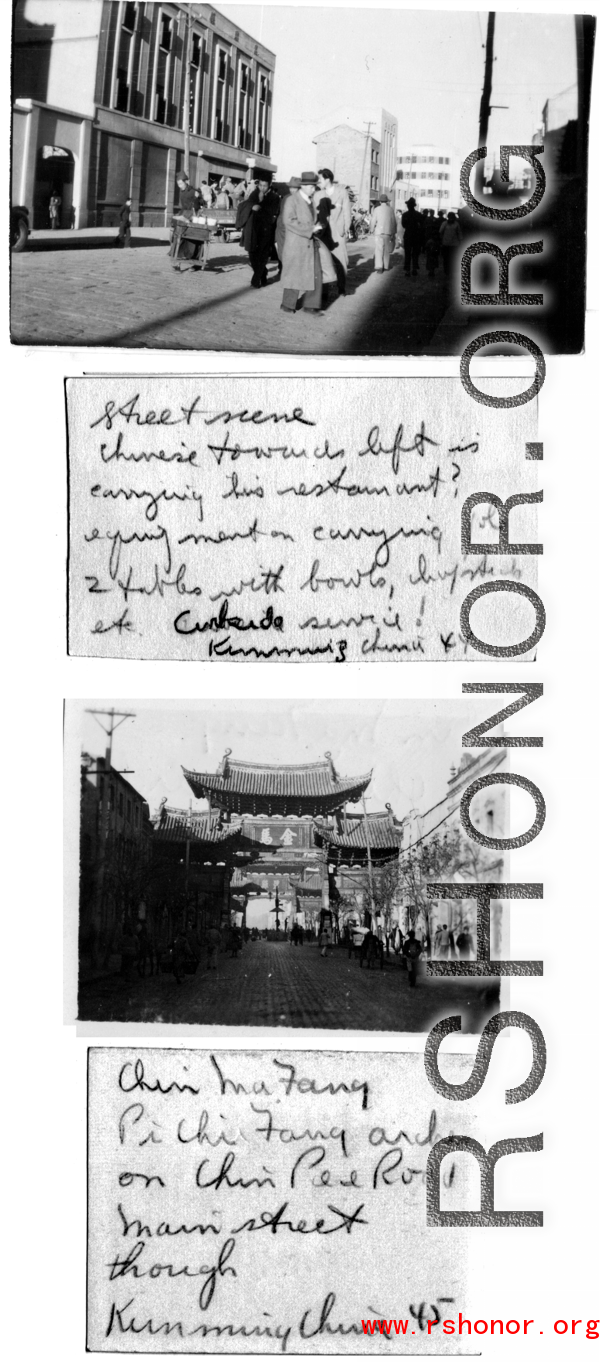 street scene
Chinese towards left is
carrying his restaurant?
equipment on carrying
2 tables with bowls, chopsticks
etc. Curbside service!
Kunming China 45
金馬
Chin Ma Fang
Pi Chi Fang arch
on Chin Pee Road
Main street
though
Kunming China 45
www.rshonor.org
RSHONOR.ORG